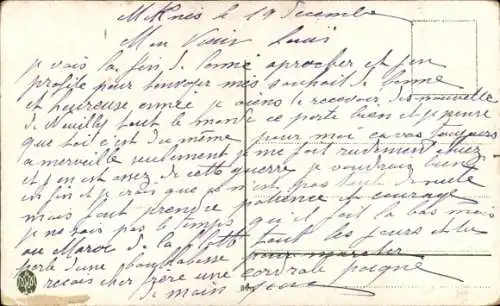 Meknès le 19 Décembre
Mon Vieux Louis
je vois la fin de l'année aprocher et j'en
profite pour t'envoyer mes souhait de bonne
et heureuse année je viens de recevoir des nouvelle
de Neuilly tout le monde ce porte bien et je pense
que toi c'est du même pour moi ca va toujours
a merveille seulement je me fait rudement chier
et j'en est assez de cette guerre je voudrais bien
en fin et je crois que ce n'est pas tout de suite
mais faut prendre patience et courage
je ne sais pas le temps qu'il fait là bas mais
au Maroc de la flotte tout les jours et la
perte d'une pour marcher
recois cher frère une cordiale poigné
de main